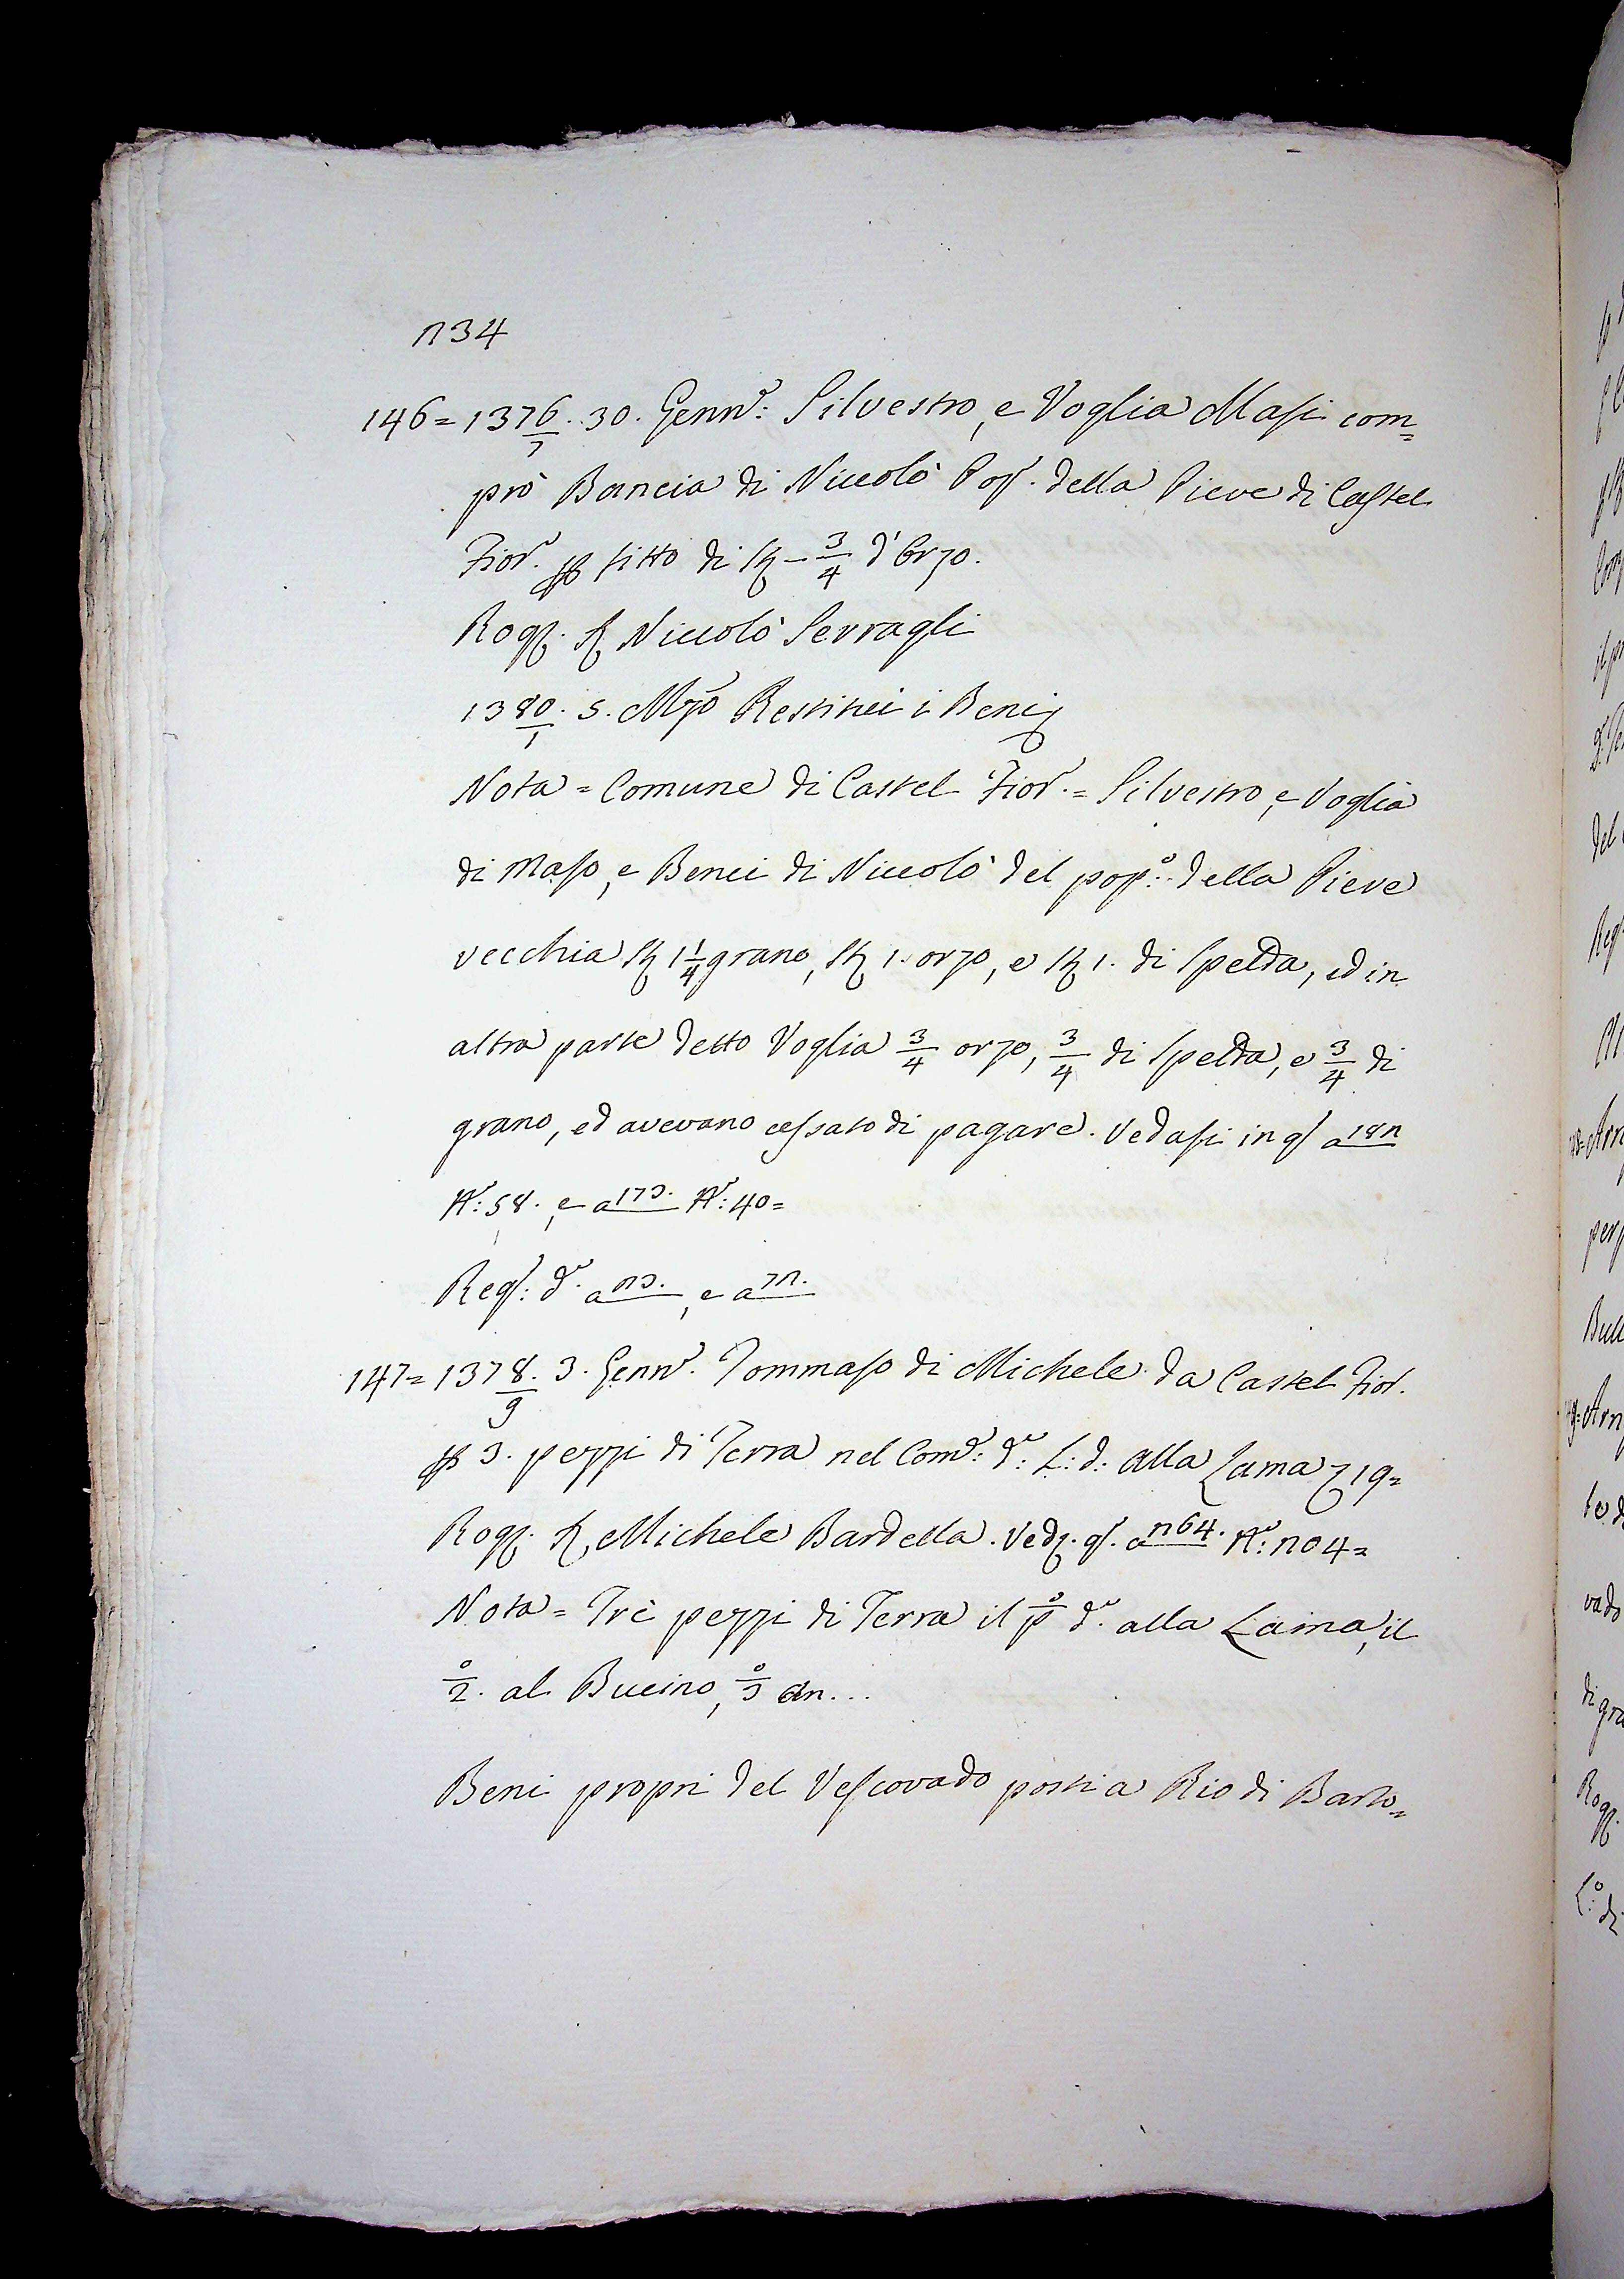 n34
146= 1376/7. 30. Genn.o: Silvestro, e Voglia Masi com=
prò Bancia di Niccolò Pop. della Pieve di Castel
Fior.o p fitto di St - 3/4 d'Orzo.
Rog. S. Niccolò Serragli
1380/1. 5. Mzo Restituì i Beni
Nota = Comune di Castel Fior.o = Silvestro, e Voglia
di Maso, e Benci di Niccolò del pop.o: della Pieve
vecchia St 1 1/4 grano, St 1. orzo, e St 1. di Spelda, ed in
altra parte detto Voglia 3/4 orzo, 3/4 di Spelda, e 3/4 di
grano, ed avevano cessato di pagare. Vedasi in q. a 18n
N.o: 58., e a 173. N.o: 40=
Reg.: d.o a n3., e a 7n.
147= 1378/9. 3. Genn.o. Tommaso di Michele da Castel Fior.
p 3. pezzi di Terra nel Com.e: d.o: L: d: alla Lama 19=
Rog. S. Michele Bardella. Ved. q. a n64. N.o: n04=
Nota = Trè pezzi di Terra il p.o d.o alla Lama, il
2.o al Bucino, 3.o an...
Beni propri del Vescovado posti a Rio di Barto=